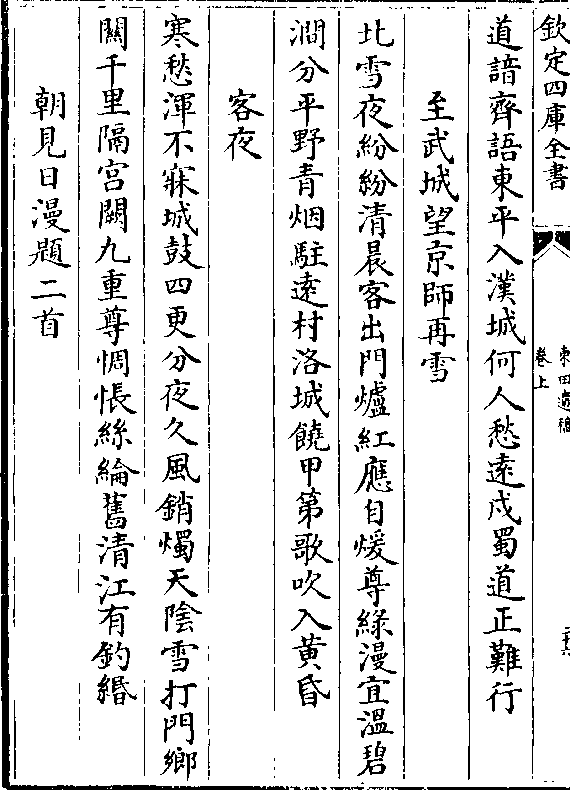 欽定四庫全書
東田遺稿
卷上
道諳齊語東平入漢城何人愁遠戍蜀道正難行
至武城望京師再雪
北雪夜紛紛清晨客出門爐紅應自煖尊綠漫宜溫碧
澗分平野青烟駐遠村洛城饒甲第歌吹入黃昏
客夜
寒愁渾不寐城鼓四更分夜久風銷燭天陰雪打門鄉
關千里隔宮闕九重尊惆悵絲綸舊清江有釣緡
朝見日漫題二首